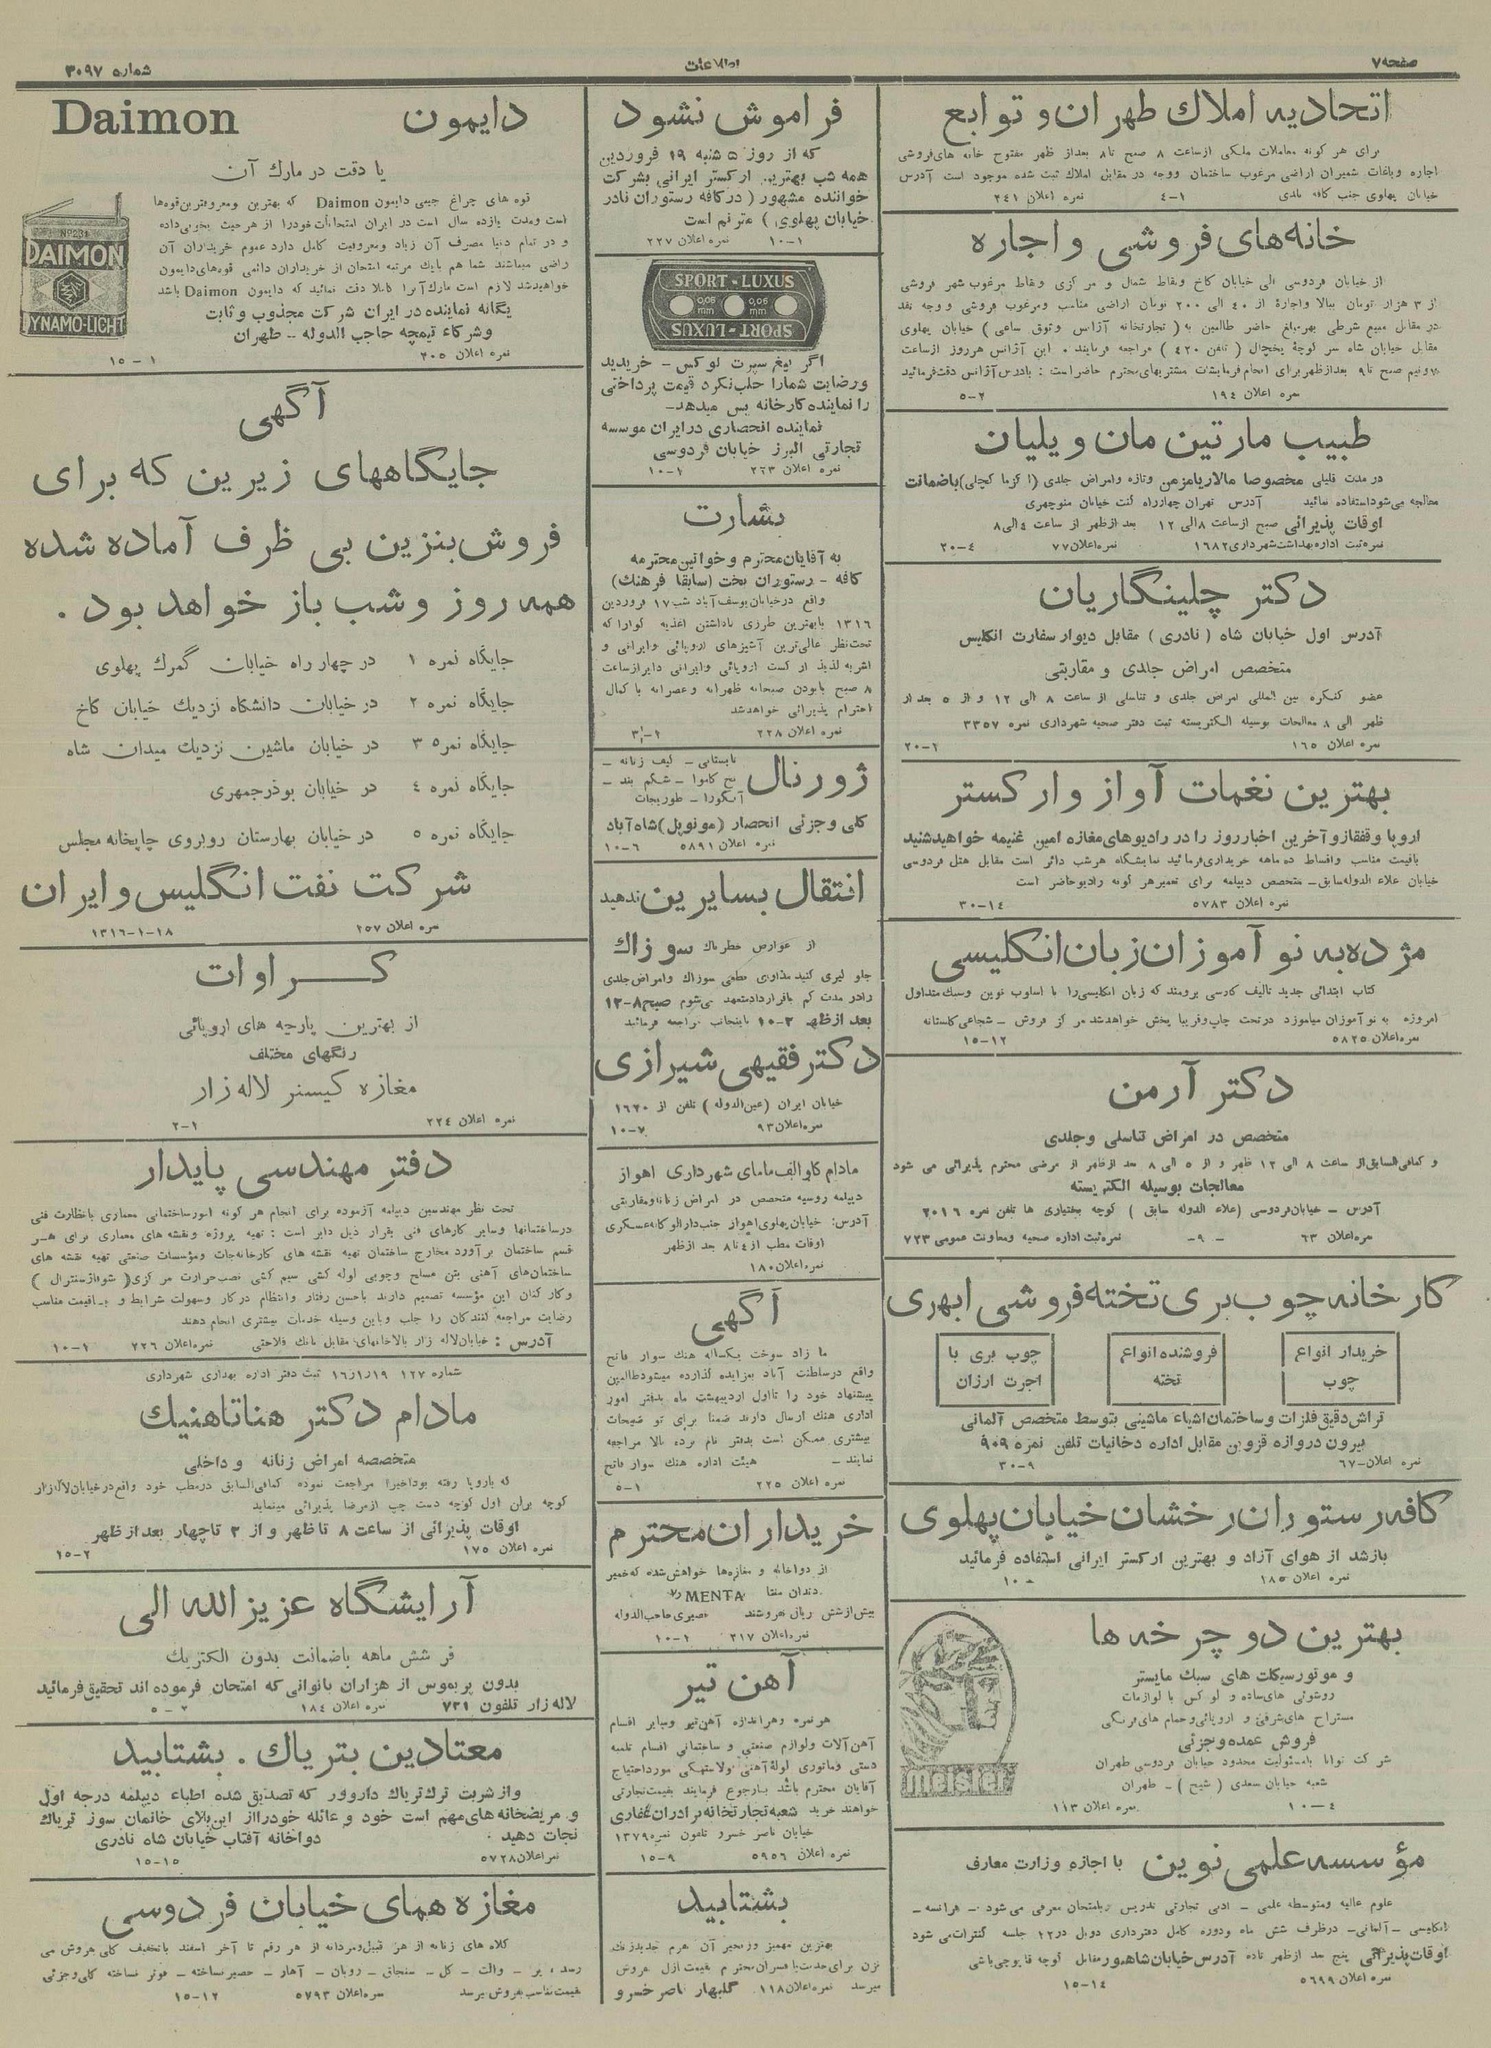 صفحه ۷
اطلاعات
شماره ۳۰۹۷
اتحادیه املاك طهران و توابع
برای هر گونه معاملات ملکی از ساعت ۸ صبح تا ۸ بعداز ظهر مفتوح خانه های فروشی
اجاره و باغات شمیران اراضی مرغوب ساختمان ووجه در مقابل املاك ثبت شده موجود است آدرس
خیابان پهلوی جنب کافه بلدی
۱-۴ نمره اعلان ۲۴۱
خانه های فروشی و اجاره
از خیابان فردوسی الی خیابان کاخ ونقاط شمال و مرکزی ونقاط مرغوب شهر فروشی
از ۳ هزار تومان ببالا واجارهٔ از ۴۰ الی ۲۰۰ تومان اراضی مناسب ومرغوب فروشی و وجه نقد
در مقابل مبیع شرطی بهرمبلغ حاضر طالبین به ( تجارتخانه آژانس وثوق ساعی ) خیابان پهلوی
مقابل خیابان شاه سر کوچهٔ یخچال ( تلفن ۴۲۰ ) مراجعه فرمایند . این آژانس هرروز از ساعت
ونیم صبح تا ۹ بعدازظهر برای انجام فرمایشات مشتریهای محترم حاضر است : بآدرس آژانس دقت فرمائید
نمره اعلان ۱۹۴ ۲-۵
طبیب مارتین مان ویلیان
در مدت قلیلی مخصوصا مالاریا مزمن وتازه وامراض جلدی (اگزما کچلی) باضمانت
معالجه می شود استفاده نمائید آدرس تهران چهارراه کنت خیابان منوچهری
اوقات پذیرائی صبح از ساعت ۸ الی ۱۲ بعد ازظهر از ساعت ۴ الی ۸
نمره ثبت اداره بهداشت شهرداری ۱۶۸۲ نمره اعلان ۷۷ ۴-۲۰
دکتر چلینگاریان
آدرس اول خیابان شاه ( نادری ) مقابل دیوار سفارت انگلیس
متخصص امراض جلدی و مقاربتی
عضو کنگره بین المللی امراض جلدی و تناسلی از ساعت ۸ الی ۱۲ و از ۵ بعد از
ظهر الی ۸ معالجات بوسیله الکتریسته ثبت دفتر صحیه شهرداری نمره ۳۳۵۷
نمره اعلان ۱۶۵ ۲-۲۰
بهترین نغمات آواز وارکستر
اروپا وقفقاز و آخرین اخبار روز را در رادیوهای مغازه امین غنیمه خواهید شنید
باقیمت مناسب واقساط ده ماهه خریداری فرمائید نمایشگاه هرشب دائر است مقابل هتل فردوسی
خیابان علاء الدوله سابق - متخصص دیپلمه برای تعمیر هر گونه رادیو حاضر است
نمره اعلان ۵۷۸۳ ۱۴-۳۰
مژده به نو آموزان زبان انگلیسی
کتاب ابتدائی جدید تالیف کارسی برومند که زبان انگلیسی را با اسلوب نوین وسبك متداول
امروزه به نو آموزان میآموزد در تحت چاپ وقریبا پخش خواهد شد مرکز فروش - شجاعی گلستانه
نمره اعلان ۵۸۲۵ ۱۲-۱۵
دکتر آرمن
متخصص در امراض تناسلی و جلدی
و کمافی السابق از ساعت ۸ الی ۱۲ ظهر و از ۵ الی ۸ بعد از ظهر از مرضی محترم پذیرائی می شود
معالجات بوسیله الکتریسته
آدرس - خیابان فردوسی (علاء الدوله سابق ) کوچه بختیاری ها تلفن نمره ۲۰۱۶
نمره اعلان ۶۳ -۹- نمره ثبت اداره صحیه ومعاونت عمومی ۷۲۳
کارخانه چوب بری تخته فروشی ابهری
خریدار انواع چوب
فروشنده انواع تخته
چوب بری با اجرت ارزان
تراش دقیق فلزات وساختمان اشیاء ماشینی بتوسط متخصص آلمانی
بیرون دروازه قزوین مقابل اداره دخانیات تلفن نمره ۹۰۹
نمره اعلان ۶۷ ۹-۳۰
کافه رستوران رخشان خیابان پهلوی
بازشد از هوای آزاد و بهترین ارکستر ایرانی استفاده فرمائید
نمره اعلان ۱۸۵
بهترین دو چرخه ها
و موتورسیکلت های سبك مایستر
روشوئی های ساده و لوکس با لوازمات
مستراح های شرقی و اروپائی وحمام های فرنگی
فروش عمده و جزئی
شرکت توانا با مسئولیت محدود خیابان فردوسی طهران
شعبه خیابان سعدی ( شیخ ) - طهران
۴-۱۰ نمره اعلان ۱۱۳
meister
مؤسسه علمی نوین با اجازه وزارت معارف
علوم عالیه ومتوسطه علمی - ادبی تجارتی تدریس وبامتحان معرفی می شود - فرانسه -
انگلیسی - آلمانی - درظرف شش ماه ودوره کامل دفترداری دوبل در ۱۲ جلسه کنترات می شود
اوقات پذیرائی پنج بعد ازظهر آدرس خیابان شاهپور مقابل کوچه قاپوچی باشی
نمره اعلان ۵۶۹۹ ۱۴-۱۵
فراموش نشود
که از روز ۵ شنبه ۱۹ فروردین
همه شب بهترین ارکستر ایرانی بشرکت
خواننده مشهور ( در کافه رستوران نادر
خیابان پهلوی ) مترنم است
۱-۱۰ نمره اعلان ۲۲۷
SPORT-LUXUS
0,06 mm 0,06 mm
SPORT-LUXUS
اگر تیغ سپرت لوکس - خریدید
ورضایت شمارا جلب نکرد قیمت پرداختی
را نماینده کارخانه پس میدهد -
نماینده انحصاری در ایران موسسه
تجارتی البرز خیابان فردوسی
نمره اعلان ۲۲۳ ۱-۱۰
بشارت
به آقایان محترم و خوانین محترمه
کافه - رستوران بخت (سابقا فرهنك)
واقع در خیابان یوسف آباد شب ۱۷ فروردین
۱۳۱۶ بابهترین طرزی باداشتن اغذیه گوارا که
تحت نظر عالی ترین آشپزهای اروپائی وایرانی و
اشربه لذیذ ارکست اروپائی وایرانی دایر از ساعت
۸ صبح بابودن صبحانه ظهرانه وعصرانه با کمال
احترام پذیرائی خواهد شد
نمره اعلان ۲۲۸ ۱-۳
ژورنال
تابستانی - کیف زنانه -
نخ کاموا - شکم بند -
آنگورا - طوریجات
کلی و جزئی انحصار (مونوپل) شاه آباد
نمره اعلان ۵۸۹۱ ۶-۱۰
انتقال بسایرین ندهید
از عوارض خطرناك سوزاك
جلو گیری کنید مداوای قطعی سوزاك وامراض جلدی
را در مدت کم باقرارداد متعهد می شوم صبح ۸-۱۲
بعد ازظهر ۳-۱۰ باینجانب مراجعه فرمائید
دکتر فقیهی شیرازی
خیابان ایران (عین الدوله) تلفن از ۱۶۲۰
نمره اعلان ۹۳ ۷-۱۰
مادام کاو الف مامای شهرداری اهواز
دیپلمه روسیه متخصص در امراض زنانه و مقاربتی
آدرس: خیابان پهلوی اهواز جنب دارالوکاله عسکری
اوقات مطب از ۴ تا ۸ بعد ازظهر
نمره اعلان ۱۸۰
آگهی
مازاد سوخت یکساله هنك سوار فاتح
واقع در سلطنت آباد بمزایده گذارده میشود طالبین
پیشنهاد خود را تا اول اردیبهشت ماه بدفتر امور
اداری هنك ارسال دارند ضمنا برای توضیحات
بیشتری ممکن است بدفتر نام برده بالا مراجعه
نمایند - هیئت اداره هنك سوار فاتح
نمره اعلان ۲۲۵ ۱-۵
خریداران محترم
از دواخانه و مغازه ها خواهش شده که خمیر
دندان منتا MENTA را
بیش از شش ریال نفروشند نصیری حاجب الدوله
نمره اعلان ۲۱۷ ۱-۱۰
آهن تیر
هر نمره وهر اندازه آهن تیر وسایر اقسام
آهن آلات ولوازم صنعتی و ساختمانی اقسام تلمبه
دستی وماتوری لولهٔ آهنی ولاستیکی مورد احتیاج
آقایان محترم باشد بما رجوع فرمایند بقیمت تجارتی
خواهند خرید شعبه تجارتخانه برادران غفاری
خیابان ناصر خسرو تلفون نمره ۱۳۷۹
نمره اعلان ۵۹۵۶ ۹-۱۵
بشتابید
بهترین مهمیز وزنجیر آن فرم جدید زنك
نزن برای خدمت با فسران محترم بقیمت ازل فروش
میرسد نمره اعلان ۱۱۸ گلبهار ناصر خسرو
دایمون Daimon
با دقت در مارك آن
قوه های چراغ جیبی دایمون Daimon که بهترین ومعروفترین قوه ها
است ومدت یازده سال است در ایران امتحانات خود را از هر حیث بخوبی داده
و در تمام دنیا مصرف آن زیاد ومعروفیت کامل دارد عموم خریداران آن
راضی میباشند شما هم بایك مرتبه امتحان از خریداران دائمی قوه های دایمون
خواهید شد لازم است مارك آنرا کاملا دقت نمائید که دایمون Daimon باشد
یگانه نماینده در ایران شرکت مجذوب و ثابت
وشرکاء تیمچه حاجب الدوله - طهران
نمره اعلان ۲۰۵ ۱-۱۵
DAIMON
DYNAMO-LIGHT
آگهی
جایگاههای زیرین که برای
فروش بنزین بی ظرف آماده شده
همه روز و شب باز خواهد بود .
جایگاه نمره ۱ در چهار راه خیابان گمرك پهلوی
جایگاه نمره ۲ در خیابان دانشگاه نزدیك خیابان کاخ
جایگاه نمره ۳ در خیابان ماشین نزدیك میدان شاه
جایگاه نمره ۴ در خیابان بوذرجمهری
جایگاه نمره ۵ در خیابان بهارستان روبروی چاپخانه مجلس
شرکت نفت انگلیس و ایران
نمره اعلان ۲۵۷ ۱۸-۱-۱۳۱۶
کراوات
از بهترین پارچه های اروپائی
رنگهای مختلف
مغازه کیسنر لاله زار
نمره اعلان ۲۲۴ ۱-۲
دفتر مهندسی پایدار
تحت نظر مهندسین دیپلمه آزموده برای انجام هر گونه امور ساختمانی معماری بانظارت فنی
در ساختمانها وسایر کارهای فنی بقرار ذیل دایر است : تهیه پروژه و نقشه های معماری برای هر
قسم ساختمان برآورد مخارج ساختمان تهیه نقشه های کارخانه جات ومؤسسات صنعتی تهیه نقشه های
ساختمان های آهنی بتن مسلح وچوبی لوله کشی سیم کشی نصب حرارت مرکزی ( شوفاژ سنترال )
وکارکنان این مؤسسه تصمیم دارند باحسن رفتار وانتظام در کار وسهولت شرایط و باقیمت مناسب
رضایت مراجعه کنندگان را جلب وباین وسیله خدمات بیشتری انجام دهند
آدرس : خیابان لاله زار بالاخانه های مقابل بانك فلاحتی نمره اعلان ۲۲۶ ۱-۱۰
شماره ۱۲۷ ۱۶/۱/۱۹ ثبت دفتر اداره بهداری شهرداری
مادام دکتر هناتاهنیك
متخصصه امراض زنانه و داخلی
که باروپا رفته بود اخیرا مراجعت نموده کمافی السابق در مطب خود واقع در خیابان لاله زار
کوچه بران اول کوچه دست چپ از مرضا پذیرائی مینماید
اوقات پذیرائی از ساعت ۸ تا ظهر و از ۲ تا چهار بعد از ظهر
نمره اعلان ۱۷۵ ۲-۱۵
آرایشگاه عزیزالله الی
فر شش ماهه باضمانت بدون الکتریك
بدون پریموس از هزاران بانوانی که امتحان فرموده اند تحقیق فرمائید
لاله زار تلفون ۷۳۱ نمره اعلان ۱۸۴ ۲-۵
معتادین بتریاك . بشتابید
واز شربت ترك تریاك داروور که تصدیق شده اطباء دیپلمه درجه اول
و مریضخانه های مهم است خود و عائله خود را از این بلای خانمان سوز تریاك
نجات دهید . دواخانه آفتاب خیابان شاه نادری
نمره اعلان ۵۷۲۸ ۱۵-۱۵
مغازه همای خیابان فردوسی
کلاه های زنانه از هر قبیل ومردانه از هر رقم تا آخر اسفند باتخفیف کلی فروش می
رسد پر - والت - کل - سنجاق - روبان - آهار - حصیر نساخته - فوتر نساخته کلی و جزئی
بقیمت مناسب بفروش میرسد نمره اعلان ۵۷۹۳ ۱۲-۱۵